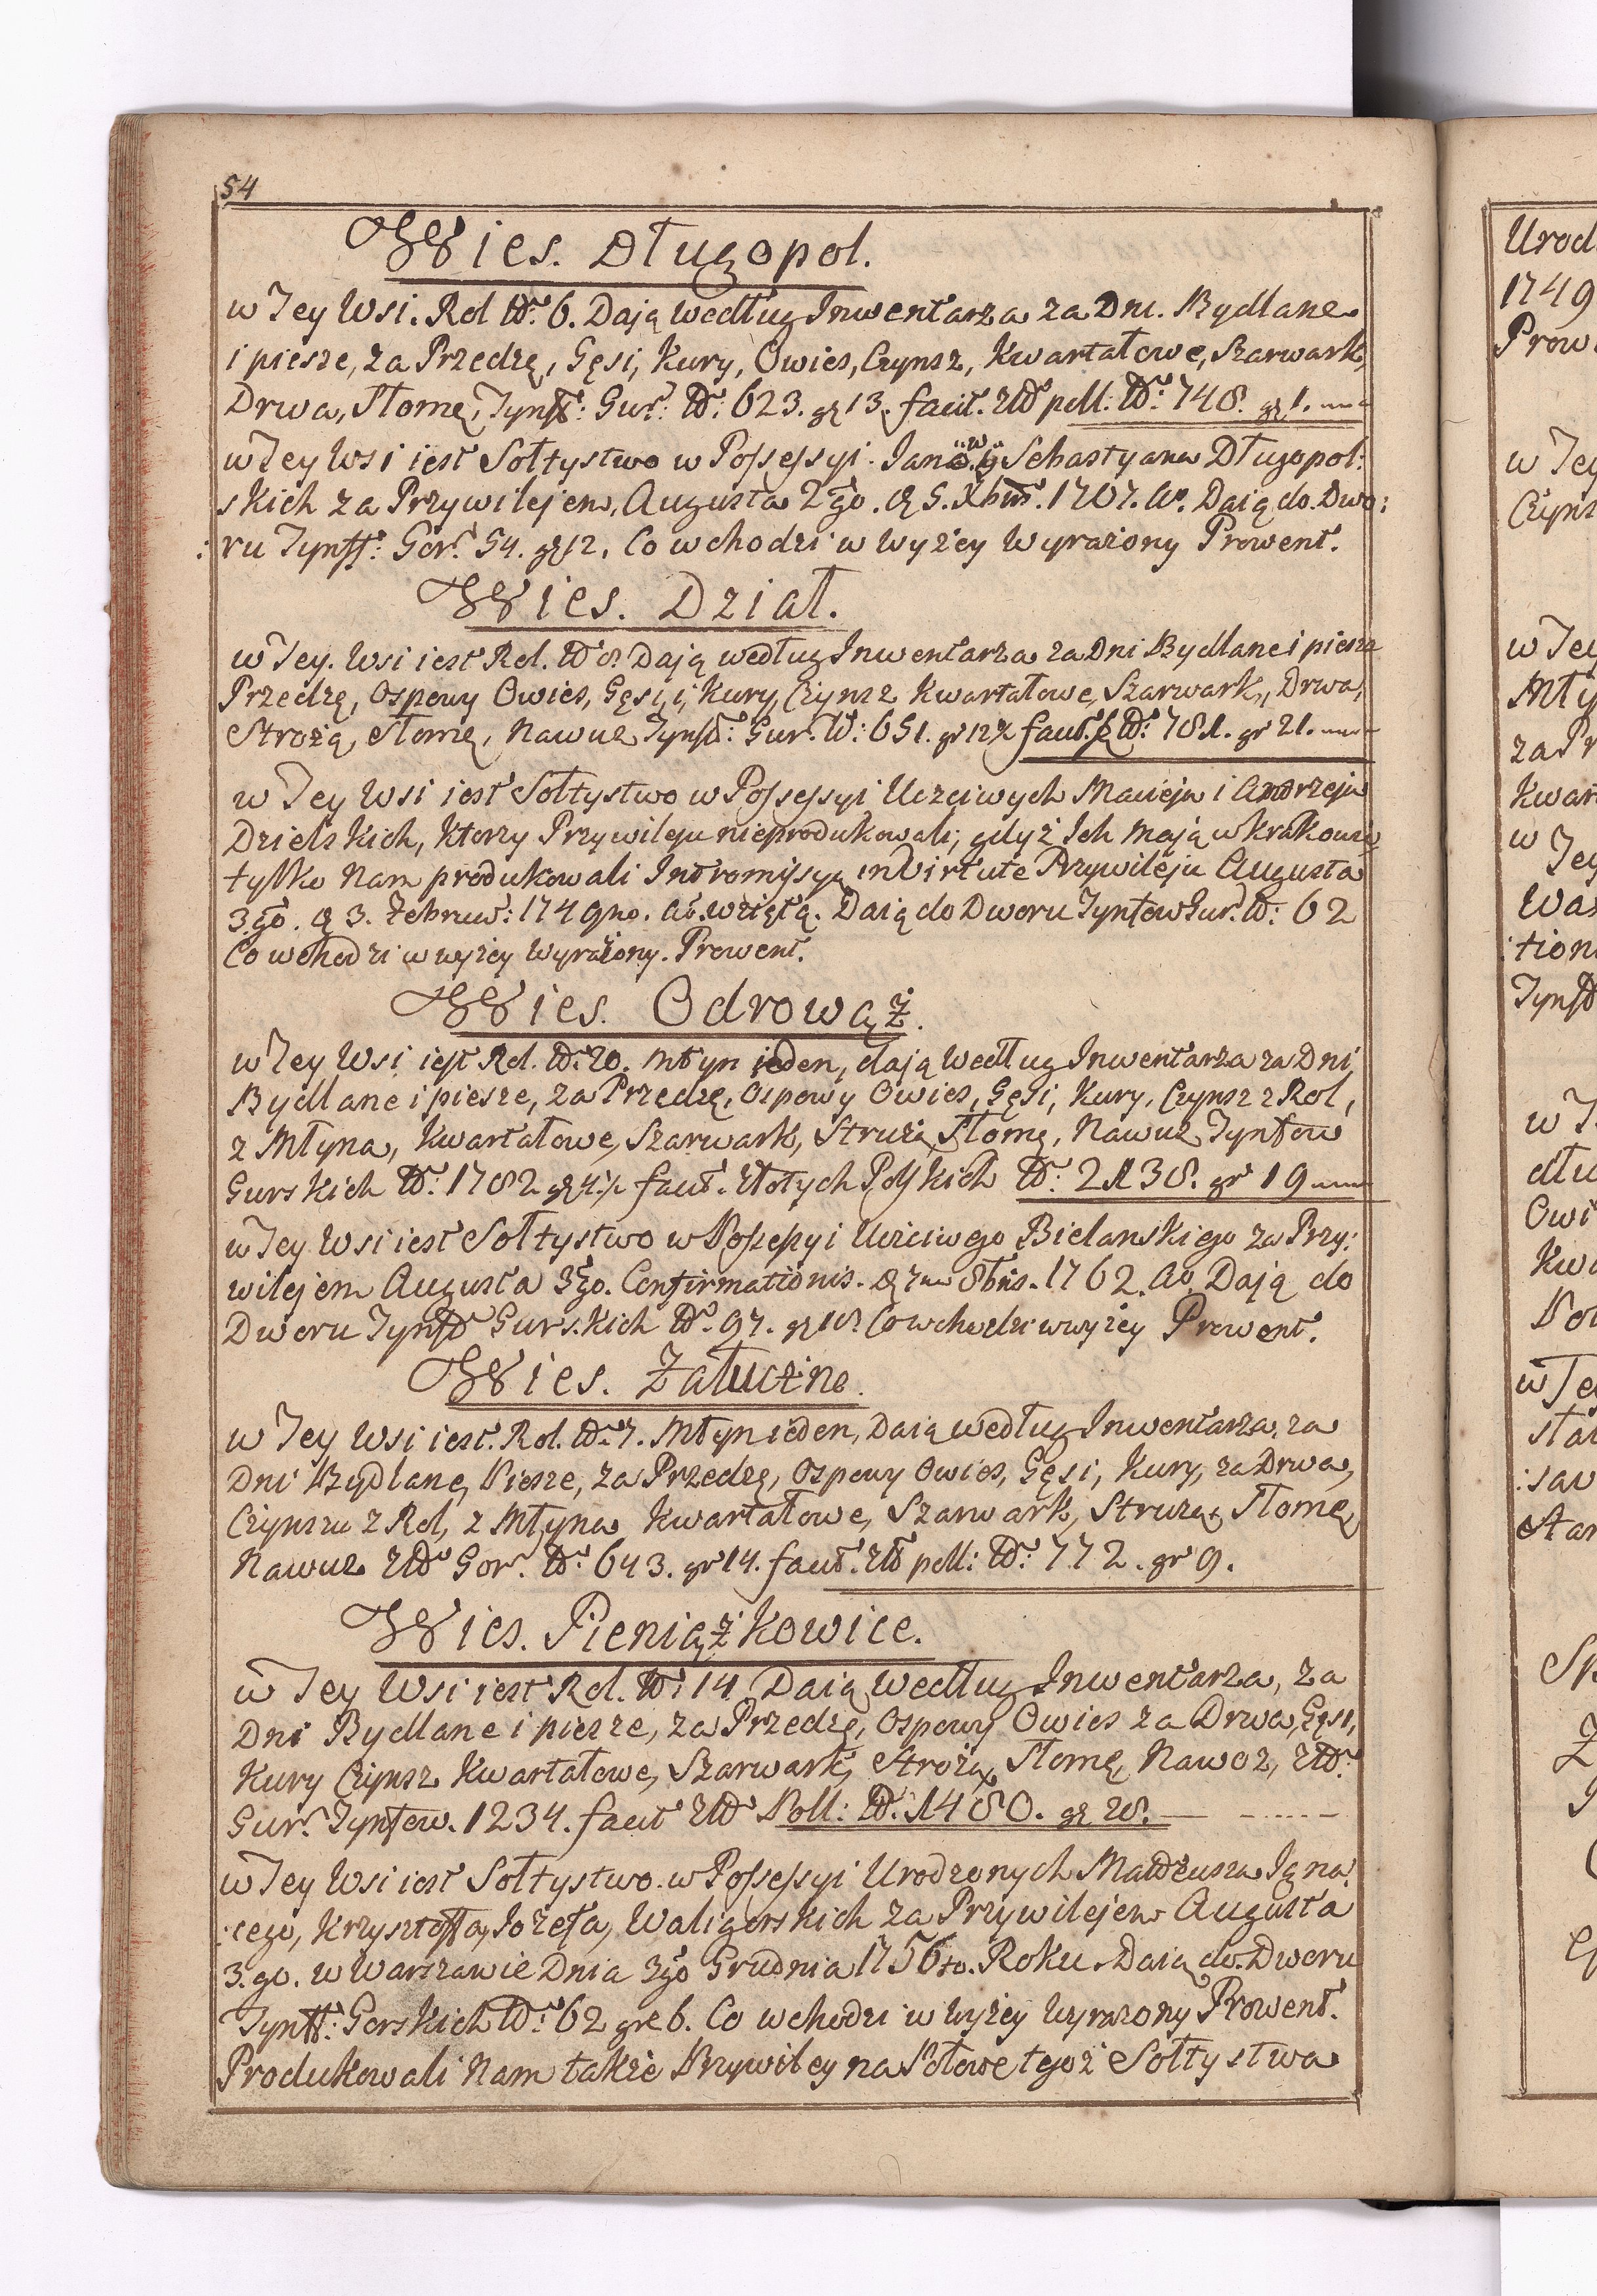 54
Wies. Długopol.
w Tey Wsi. Rol No. 6. Dają według Inwentarza za Dni. Bydlane
i piesze, za Przedzę, Gęsi, Kury, Owies, Czynsz, Kwartałowe, Szarwark,
Drwa, Słomę, Tynff: Gur: No: 623. gr 13. facit. Zło poll: No: 748. gr 1.
w Tey Wsi iest Sołtystwo w Possessyi Jana i Sebastyana Długopol:
skich za Przywilejem, Augusta 2go. d. 5. Xbris. 1707. Ao. Daią do Dwo:
:ru Tynff: Gor: 54. gr 12. Co wchodzi w wyżey wyrażony Prowent.
Wies. Dział.
w Tey. Wsi iest Rol. No 8. Dają według Inwentarza za Dni Bydlane i piesze
Przedzę, Ospowy Owies, Gęsi, i Kury, Czynsz Kwartałowe, Szarwark, Drwa,
Strożą, Słomę, Nawuz Tynff: Gur. No: 651. gr 12½ facit. No: 781. gr 21.
w Tey Wsi iest Sołtystwo w Possessyi Uczciwych Macieja i Andrzeja
Dzielskich, Ktorzy Przywileju nieprodukowali, gdyż Ich mają w Krakowie
tylko Nam produkowali Intromissyą in Virtute Przywileju Augusta
3.go. d. 3. Febru: 1749no. Ao. wziętą. Daią do Dworu Tynfow Gur. No: 62
Co wchodzi w wyżey wyrażony. Prowent.
Wies. Odrowąż.
w Tey Wsi iest Rol. No. 20. Młyn ieden, dają według Inwentarza za Dni,
Bydlane i piesze, za Przedzę, Ospowy Owies, Gęsi, Kury, Czynsz z Rol,
z Młyna, Kwartałowe, Szarwark, Strużą, Słomę, Nawuz Tynfow
Gurskich No: 1782 gr facit. Złotych Polskich No: 2138. gr 19
w Tey Wsi iest Sołtystwo w Possessyi Uczciwego Bielanskiego za Przy:
wilejem Augusta 3go. Confirmationis. d. 7ma 8bris. 1762. Ao. Dają do
Dworu Tynff Gurskich No. 97. gr 10. Co wchodzi w wyżey Prowent.
Wies. Załuczne.
w Tey Wsi iest. Rol. No. 7. Młyn ieden, Daią według Inwentarza, za
Dni Bydlane, Piesze, za Przedzę, Ospowy Owies, Gęsi, Kury, za Drwa,
Czynszu z Rol, z Młyna Kwartałowe, Szarwark, Strużą, Słomę,
Nawuz Zło Gor. No: 643. gr 14. facit. Zło poll: No: 772. gr 9.
Wies. Pieniążkowice.
w Tey Wsi iest Rol. No: 14. Daią według Inwentarza, za
Dni Bydlane i piesze, za Przedzę, Ospowy Owies za Drwa, Gęsi,
Kury Czynsz Kwartałowe, Szarwark, Strożą, Słomę, Nawoz, Zło:
Gur. Tynfow. 1234. facit Zło Poll: No. 1480. gr 28.
w Tey Wsi iest Sołtystwo w Possessyi Urodzonych Mateusza Igna
:cego, Krzysztoffa, Jozefa, Waligorskich za Przywilejem Augusta
3.go. w Warszawie Dnia 3go Grudnia 1756to. Roku. Daią do Dworu
Tynff: Gorskich No: 62 gr 6. Co wchodzi w wyżey wyrażony Prowent.
Produkowali Nam także Przywiley na Połowę tegoż Sołtystwa